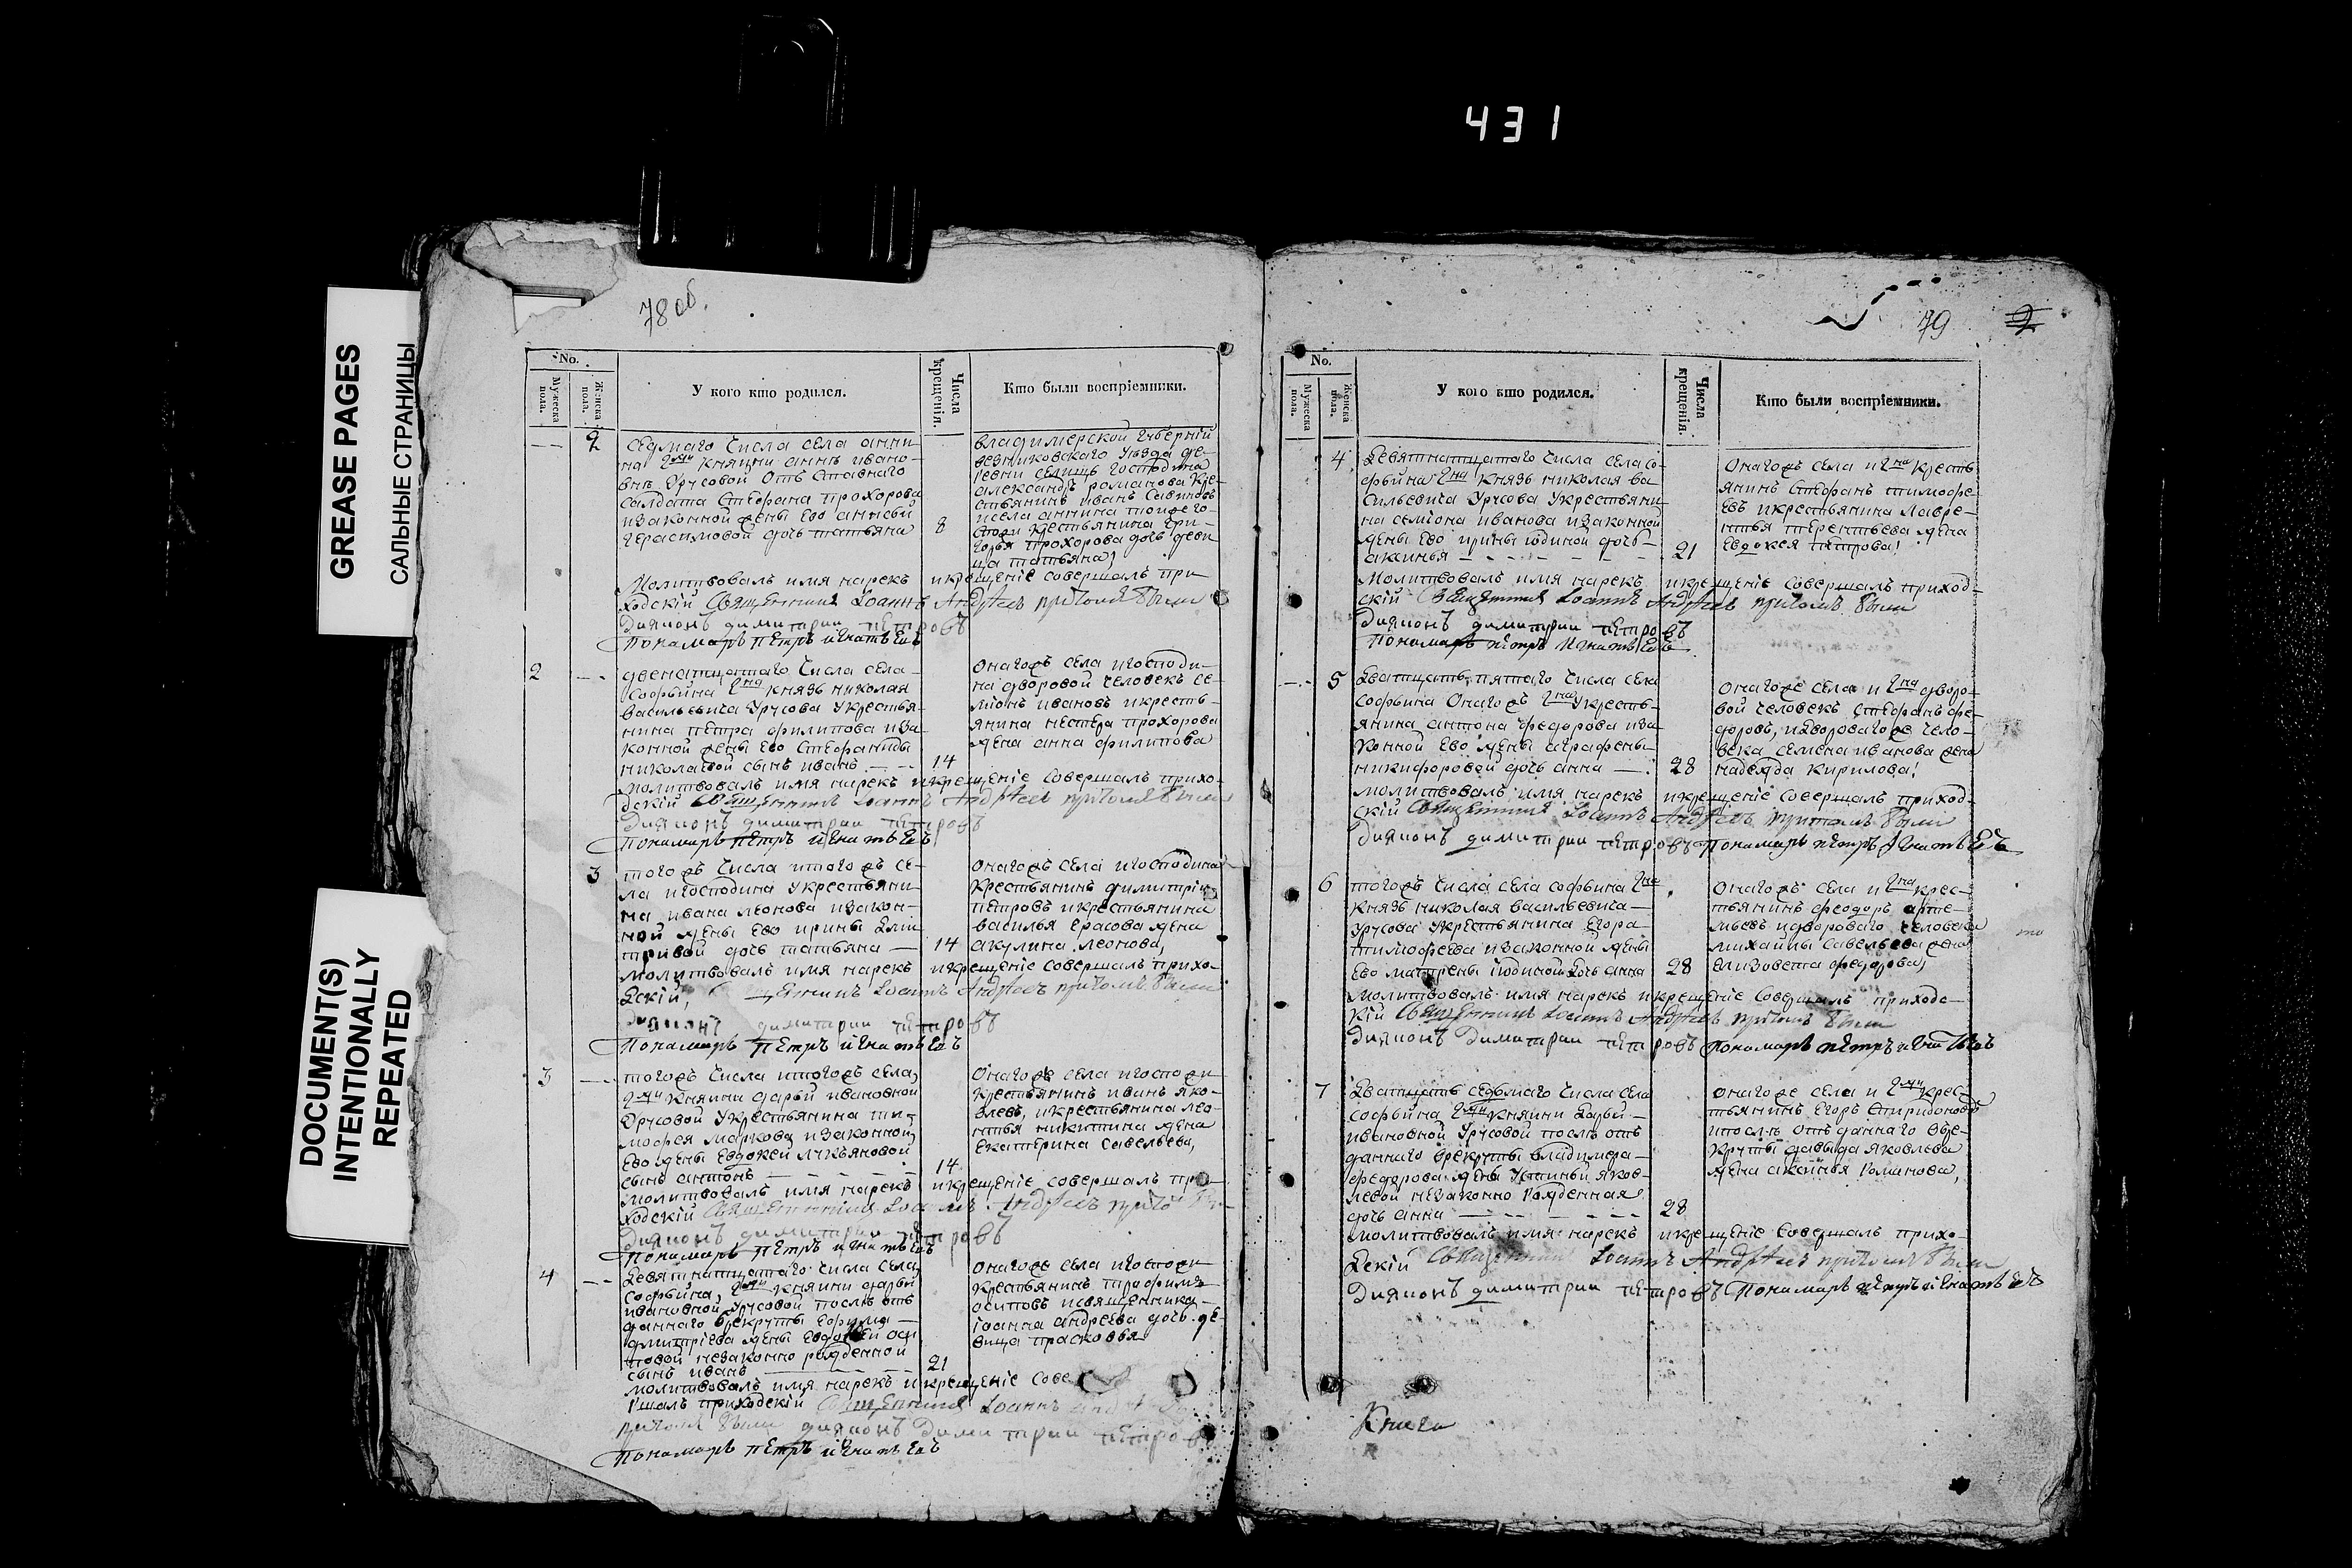 431
GREASE PAGES
САЛЬНЫЕ СТРАНИЦЫ
DOCUMENT(S)
INTENTIONALLY
REPEATED
78 об.
No.
Мужеска пола.
Женска пола.
У кого кто родился.
Числа крещенія.
Кто были воспріемники.
2
седмаго числа села анни-
на княжни анны ивано-
вны Урусовой отъ ставнаго
салдата Стефана прохорова
изаконной жены Его
герасимовой дочь татьяна
8
владимерской губерніи
везниковскаго уезда де-
ревни селищь господина
александръ романова кре-
стьянинъ иванъ Савиновъ
исела аннина
крестьянина гри-
горья прохорова дочь деви-
ца татьяна,
Молитвовалъ имя нарекъ икрещеніе совершалъ при-
ходскій Священникъ Іоаннъ Андреевъ притомъ были
Диаконъ димитрий петровъ
Пономарь петръ игнатьевъ
2
двенатцатаго числа села
Софьина князь николая
васильевича Урусова Укрестья-
нина петра филипова иза-
конной жены Его Стефаниды
николаевой сынъ иванъ
14
Онагожъ села игосподи-
на дворовой человекъ се-
мионъ ивановъ икресть-
янина нестера прохорова
жена анна филипова
молитвовалъ имя нарекъ икрещеніе совершалъ прихо-
дскій Священникъ Іоаннъ Андреевъ притомъ были
Диаконъ димитрии петровъ
Пономарь петръ игнатьевъ
3
тогожъ числа итогожъ се-
ла игосподина Укрестьяни-
на ивана леонова изакон-
ной жены Его ирины Дми-
тривой дочь татьяна
14
Онагожъ села игосподина
Крестьянинъ димитріи
петровъ икрестьянина
василья Ерасова жена
акулина леонова,
молитвовалъ имя нарекъ икрещеніе совершалъ прихо-
дскій, Іоаннъ Андреевъ притомъ были
Диаконъ димитрии петровъ
Пономарь петръ игнатьевъ
3
тогожъ числа итогожъ села,
княжни дарьи ивановной
Урусовой Укрестьянина ти-
мофея маркова изаконной
Его жены Евдокеи лукьяновой
сынъ антонъ
14
Онагожъ села игоспожи
Крестьянинъ иванъ яко-
влевъ, икрестьянина лео-
нтья никитина жена
Екатерина Савельева,
молитвовалъ имя нарекъ икрещеніе совершалъ при-
ходскій Священникъ Андреевъ
Диаконъ димитрии петровъ
Пономарь петръ игнатьевъ
4
Девятнатцатаго числа села
Софьина, княжни дарьи
ивановной Урусовой послѣ отъ
даннаго врекруты Ефима
дмитріева жены Евдокеи оси-
повой незаконно рожденной
сынъ иванъ
21
Онагоже села игоспожи
Крестьянинъ трофимъ
осиповъ исвященника
іоанна андреева дочь де-
вица прасковья
молитвовалъ имя нарекъ икрещеніе сове
ршалъ приходскій Священникъ Іоаннъ
притомъ были диаконъ Димитрии петровъ
Пономарь петръ игнатьевъ
79
2
No.
Мужеска пола.
Женска пола.
У кого кто родился.
Числа крещенія.
Кто были воспріемники.
4
Девятнатцатаго числа села со-
фьина князь николая ва-
сильевича Урусова Укрестьяни-
на семіона иванова изаконной
жены Его ирины юдиной дочь
аксинья
21
Онагожъ села и крестъ-
янинъ Стефанъ тимофе-
евъ икрестьянина лавре-
нтья терентьева жена
Евдокея петрова
Молитвовалъ имя нарекъ икрещеніе совершалъ приход-
скій Священникъ Іоаннъ Андреевъ притомъ были
Диаконъ димитрии петровъ
Пономарь петръ Игнатьевъ
5
Дватцать пятаго числа села
Софьина Онагожъ Укресть-
янина антона федорова иза-
конной Его жены аграфены
никифоровой дочь анна
28
Онагоже села и дворо-
вой человекъ Стефанъ фе-
доровъ, идвороваго же чело-
века семена иванова жена
надежда кирилова
молитвовалъ имя нарекъ икрещеніе совершалъ приход-
скій Священникъ Іоаннъ Андреевъ притомъ были
Диаконъ димитрии петровъ Пономарь петръ Игнатьевъ
6
тогожъ числа села софьина
князь николая васильевича
Урусова Укрестьянина Егора
тимофеева изаконной жены
Его матрены юдиной дочь анна
28
Онагожъ села и крес-
тьянинъ феодоръ арте-
мьевъ идвороваго человека
михаилы савельева жена
Елизовета федорова,
молитвовалъ имя нарекъ икрещеніе совершалъ приходс-
кій Священникъ Іоаннъ Андреевъ притомъ были
Диаконъ Димитрии петровъ Пономарь петръ игнатьевъ
7
Дватцать седьмаго числа села
Софьина княжни Дарьи
ивановной Урусовой послѣ отъ
даннаго врекруты владимера
федорова жены Устиньи яков-
левой незаконно рожденная
дочь анна
28
Онагоже села и крес-
тьянинъ Егоръ Спиридоновъ
ипослѣ отъданнаго вре-
круты давыда яковлева
жена аксинья романова,
молитвовалъ имя нарекъ икрещеніе Совершалъ прихо-
дскій Священникъ Іоаннъ Андреевъ притомъ были
Диаконъ димитрии петровъ Пономарь петръ игнатьевъ
Книга